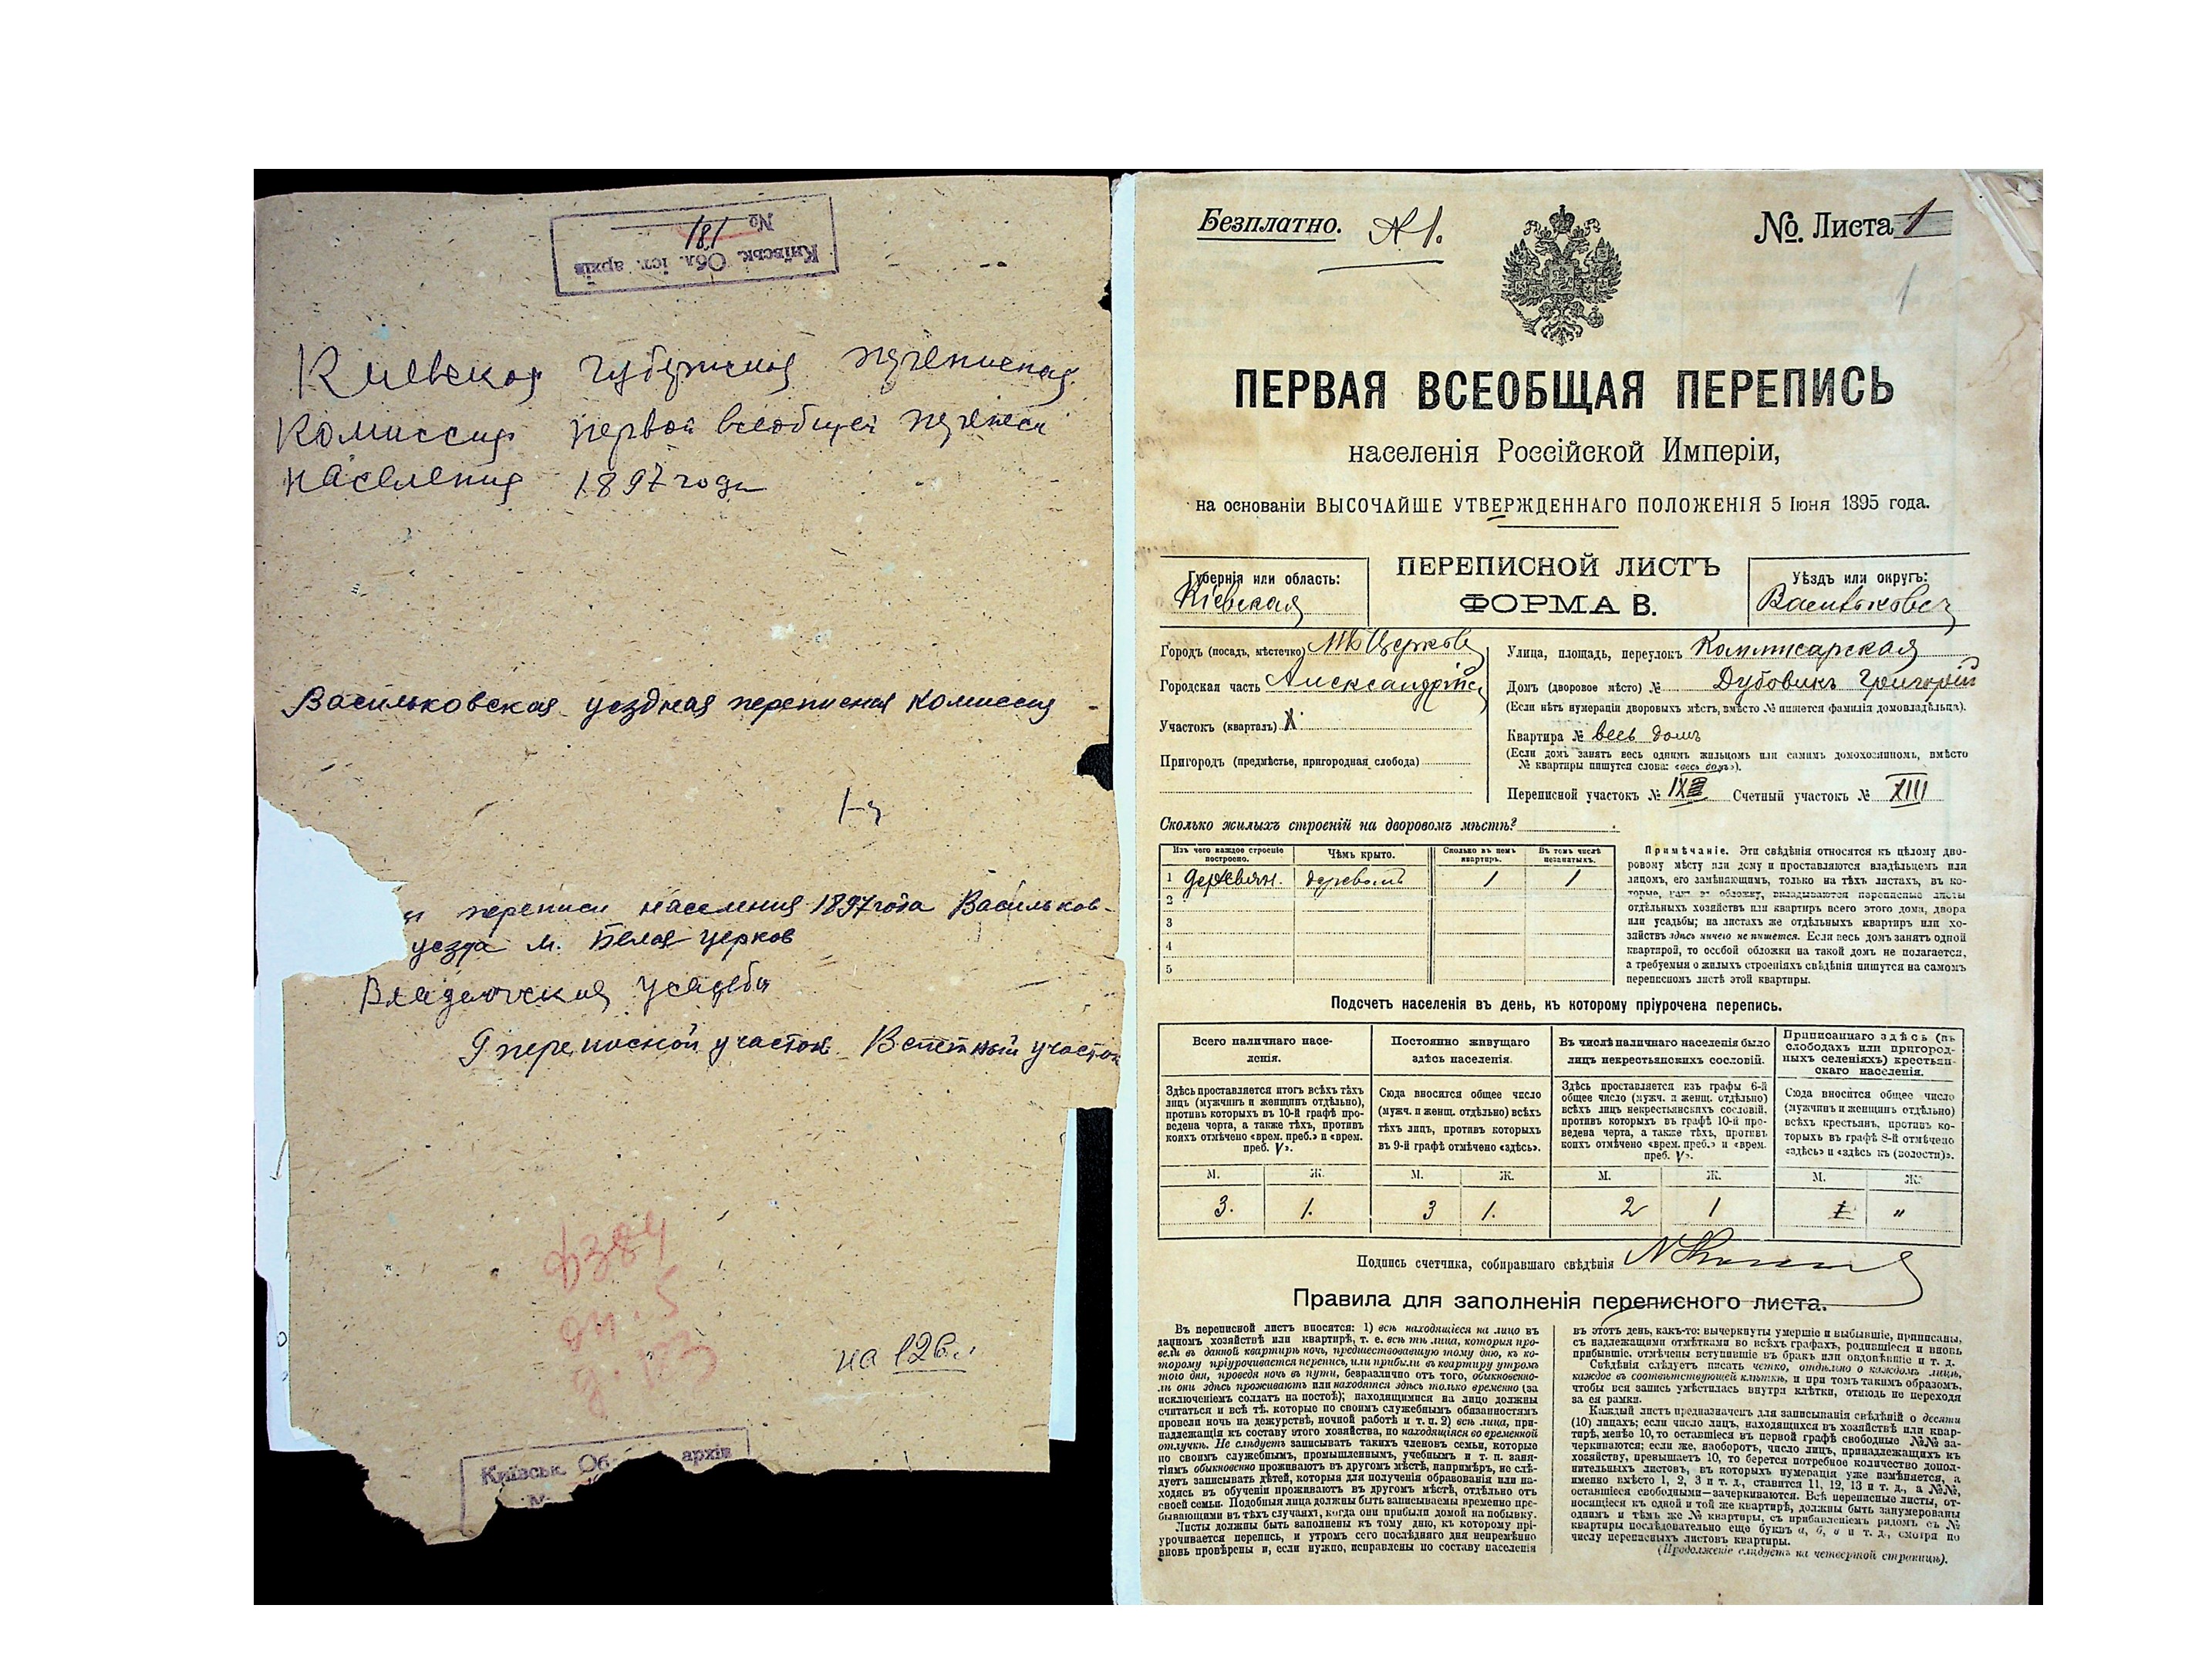 Київськ. Обл. іст. архів
№ 181
Киевская губернская переписная
комиссия первой всеобщей переписи
населения 1897 года
Васильковская уездная переписная комиссия
переписи населения 1897 года Васильков-
уезда м. Белая церков
Владельческие усадьбы
9 переписной участок счетный участок
ф 384
оп. 5
д.
на 126 л.
Київськ. Об архів
Безплатно. № 1.
№. Листа 1
1
ПЕРВАЯ ВСЕОБЩАЯ ПЕРЕПИСЬ
населенія Россійской Имперіи,
на основаніи ВЫСОЧАЙШЕ УТВЕРЖДЕННАГО ПОЛОЖЕНІЯ 5 Іюня 1895 года.
Губернія или область:
Кіевская
ПЕРЕПИСНОЙ ЛИСТЪ
ФОРМА В.
Уѣздъ или округъ:
Васильковск
Городъ (посадъ, мѣстечко) Церковь
Городская часть Александрійс
Участокъ (кварталъ) X
Пригородъ (предмѣстье, пригородная слобода)
Улица, площадь, переулокъ Коммисарская
Домъ (дворовое мѣсто) № Дубовикъ Григорій
(Если нѣтъ нумераціи дворовыхъ мѣстъ, вмѣсто № пишется фамилія домовладѣльца).
Квартира № весь домъ
(Если домъ занятъ весь однимъ жильцомъ или самимъ домохозяиномъ, вмѣсто
№ квартиры пишутся слова: «весь домъ»).
Переписной участокъ № IX Счетный участокъ № XIII
Сколько жилыхъ строеній на дворовомъ мѣстѣ?
Изъ чего каждое строеніе построено.
Чѣмъ крыто.
Сколько въ немъ квартиръ.
Въ томъ числѣ незанятыхъ.
1 деревян. 1 1
2
3
4
5
Примѣчаніе. Эти свѣдѣнія относятся къ цѣлому дво-
ровому мѣсту или дому и проставляются владѣльцемъ или
лицомъ, его замѣняющимъ, только на тѣхъ листахъ, въ ко-
торые, какъ въ обложку, вкладываются переписные листы
отдѣльныхъ хозяйствъ или квартиръ всего этого дома, двора
или усадьбы; на листахъ же отдѣльныхъ квартиръ или хо-
зяйствъ здѣсь ничего не пишется. Если весь домъ занятъ одной
квартирой, то особой обложки на такой домъ не полагается,
а требуемыя о жилыхъ строеніяхъ свѣдѣнія пишутся на самомъ
переписномъ листѣ этой квартиры.
Подсчетъ населенія въ день, къ которому пріурочена перепись.
Всего наличнаго насе-
ленія.
Здѣсь проставляется итогъ всѣхъ тѣхъ
лицъ (мужчинъ и женщинъ отдѣльно),
противъ которыхъ въ 10-й графѣ про-
ведена черта, а также тѣхъ, противъ
коихъ отмѣчено «врем. преб.» и «врем.
преб. V».
Постоянно живущаго
здѣсь населенія.
Сюда вносится общее число
(мужч. и женщ. отдѣльно) всѣхъ
тѣхъ лицъ, противъ которыхъ
въ 9-й графѣ отмѣчено «здѣсь».
Въ числѣ наличнаго населенія было
лицъ некрестьянскихъ сословій.
Здѣсь проставляется изъ графы 6-й
общее число (мужч. и женщ. отдѣльно)
всѣхъ лицъ некрестьянскихъ сословій,
противъ которыхъ въ графѣ 10-й про-
ведена черта, а также тѣхъ, противъ
коихъ отмѣчено «врем. преб.» и «врем.
преб. V».
Приписаннаго здѣсь (въ
слободахъ или пригород-
ныхъ селеніяхъ) крестьян-
скаго населенія.
Сюда вносится общее число
(мужчинъ и женщинъ отдѣльно)
всѣхъ крестьянъ, противъ ко-
торыхъ въ графѣ 8-й отмѣчено
«здѣсь» и «здѣсь къ (волости)».
М. Ж. М. Ж. М. Ж. М. Ж.
3. 1. 3 1. 2 1 1 "
Подпись счетчика, собиравшаго свѣдѣнія
Правила для заполненія переписного листа.
Въ переписной листъ вносятся: 1) всѣ находящіеся на лицо въ
данномъ хозяйствѣ или квартирѣ, т. е. всѣ тѣ лица, которыя про-
вели въ данной квартирѣ ночь, предшествовавшую тому дню, къ ко-
торому пріурочивается перепись, или прибыли въ квартиру утромъ
того дня, проведя ночь въ пути, безразлично отъ того, обыкновенно-
ли они здѣсь проживаютъ или находятся здѣсь только временно (за
исключеніемъ солдатъ на постоѣ); находящимися на лицо должны
считаться и всѣ тѣ, которые по своимъ служебнымъ обязанностямъ
провели ночь на дежурствѣ, ночной работѣ и т. п. 2) всѣ лица, при-
надлежащія къ составу этого хозяйства, но находящіяся во временной
отлучкѣ. Не слѣдуетъ записывать такихъ членовъ семьи, которые
по своимъ служебнымъ, промышленнымъ, учебнымъ и т. п. заня-
тіямъ обыкновенно проживаютъ въ другомъ мѣстѣ, напримѣръ, не слѣ-
дуетъ записывать дѣтей, которыя для полученія образованія или на-
ходясь въ обученіи проживаютъ въ другомъ мѣстѣ, отдѣльно отъ
своей семьи. Подобныя лица должны быть записываемы временно пре-
бывающими въ тѣхъ случаяхъ, когда они прибыли домой на побывку.
Листы должны быть заполнены къ тому дню, къ которому прі-
урочивается перепись, и утромъ сего послѣдняго дня непремѣнно
вновь провѣрены и, если нужно, исправлены по составу населенія
въ этотъ день, какъ-то: вычеркнуты умершіе и выбывшіе, приписаны,
съ надлежащими отмѣтками во всѣхъ графахъ, родившіеся и вновь
прибывшіе, отмѣчены вступившіе въ бракъ или овдовѣвшіе и т. д.
Свѣдѣнія слѣдуетъ писать четко, отдѣльно о каждомъ лицѣ,
каждое въ соотвѣтствующей клѣткѣ, и при томъ такимъ образомъ,
чтобы вся запись умѣстилась внутри клѣтки, отнюдь не переходя
за ея рамки.
Каждый листъ предназначенъ для записыванія свѣдѣній о десяти
(10) лицахъ; если число лицъ, находящихся въ хозяйствѣ или квар-
тирѣ, менѣе 10, то оставшіеся въ первой графѣ свободные №№ за-
черкиваются; если же, наоборотъ, число лицъ, принадлежащихъ къ
хозяйству, превышаетъ 10, то берется потребное количество допол-
нительныхъ листовъ, въ которыхъ нумерація уже измѣняется, а
именно вмѣсто 1, 2, 3 и т. д., ставится 11, 12, 13 и т. д., а №№,
оставшіеся свободными—зачеркиваются. Всѣ переписные листы, от-
носящіеся къ одной и той же квартирѣ, должны быть занумерованы
однимъ и тѣмъ же № квартиры, съ прибавленіемъ рядомъ съ №
квартиры послѣдовательно еще буквъ а, б, в и т. д., смотря по
числу переписныхъ листовъ квартиры.
(Продолженіе слѣдуетъ на четвертой страницѣ).